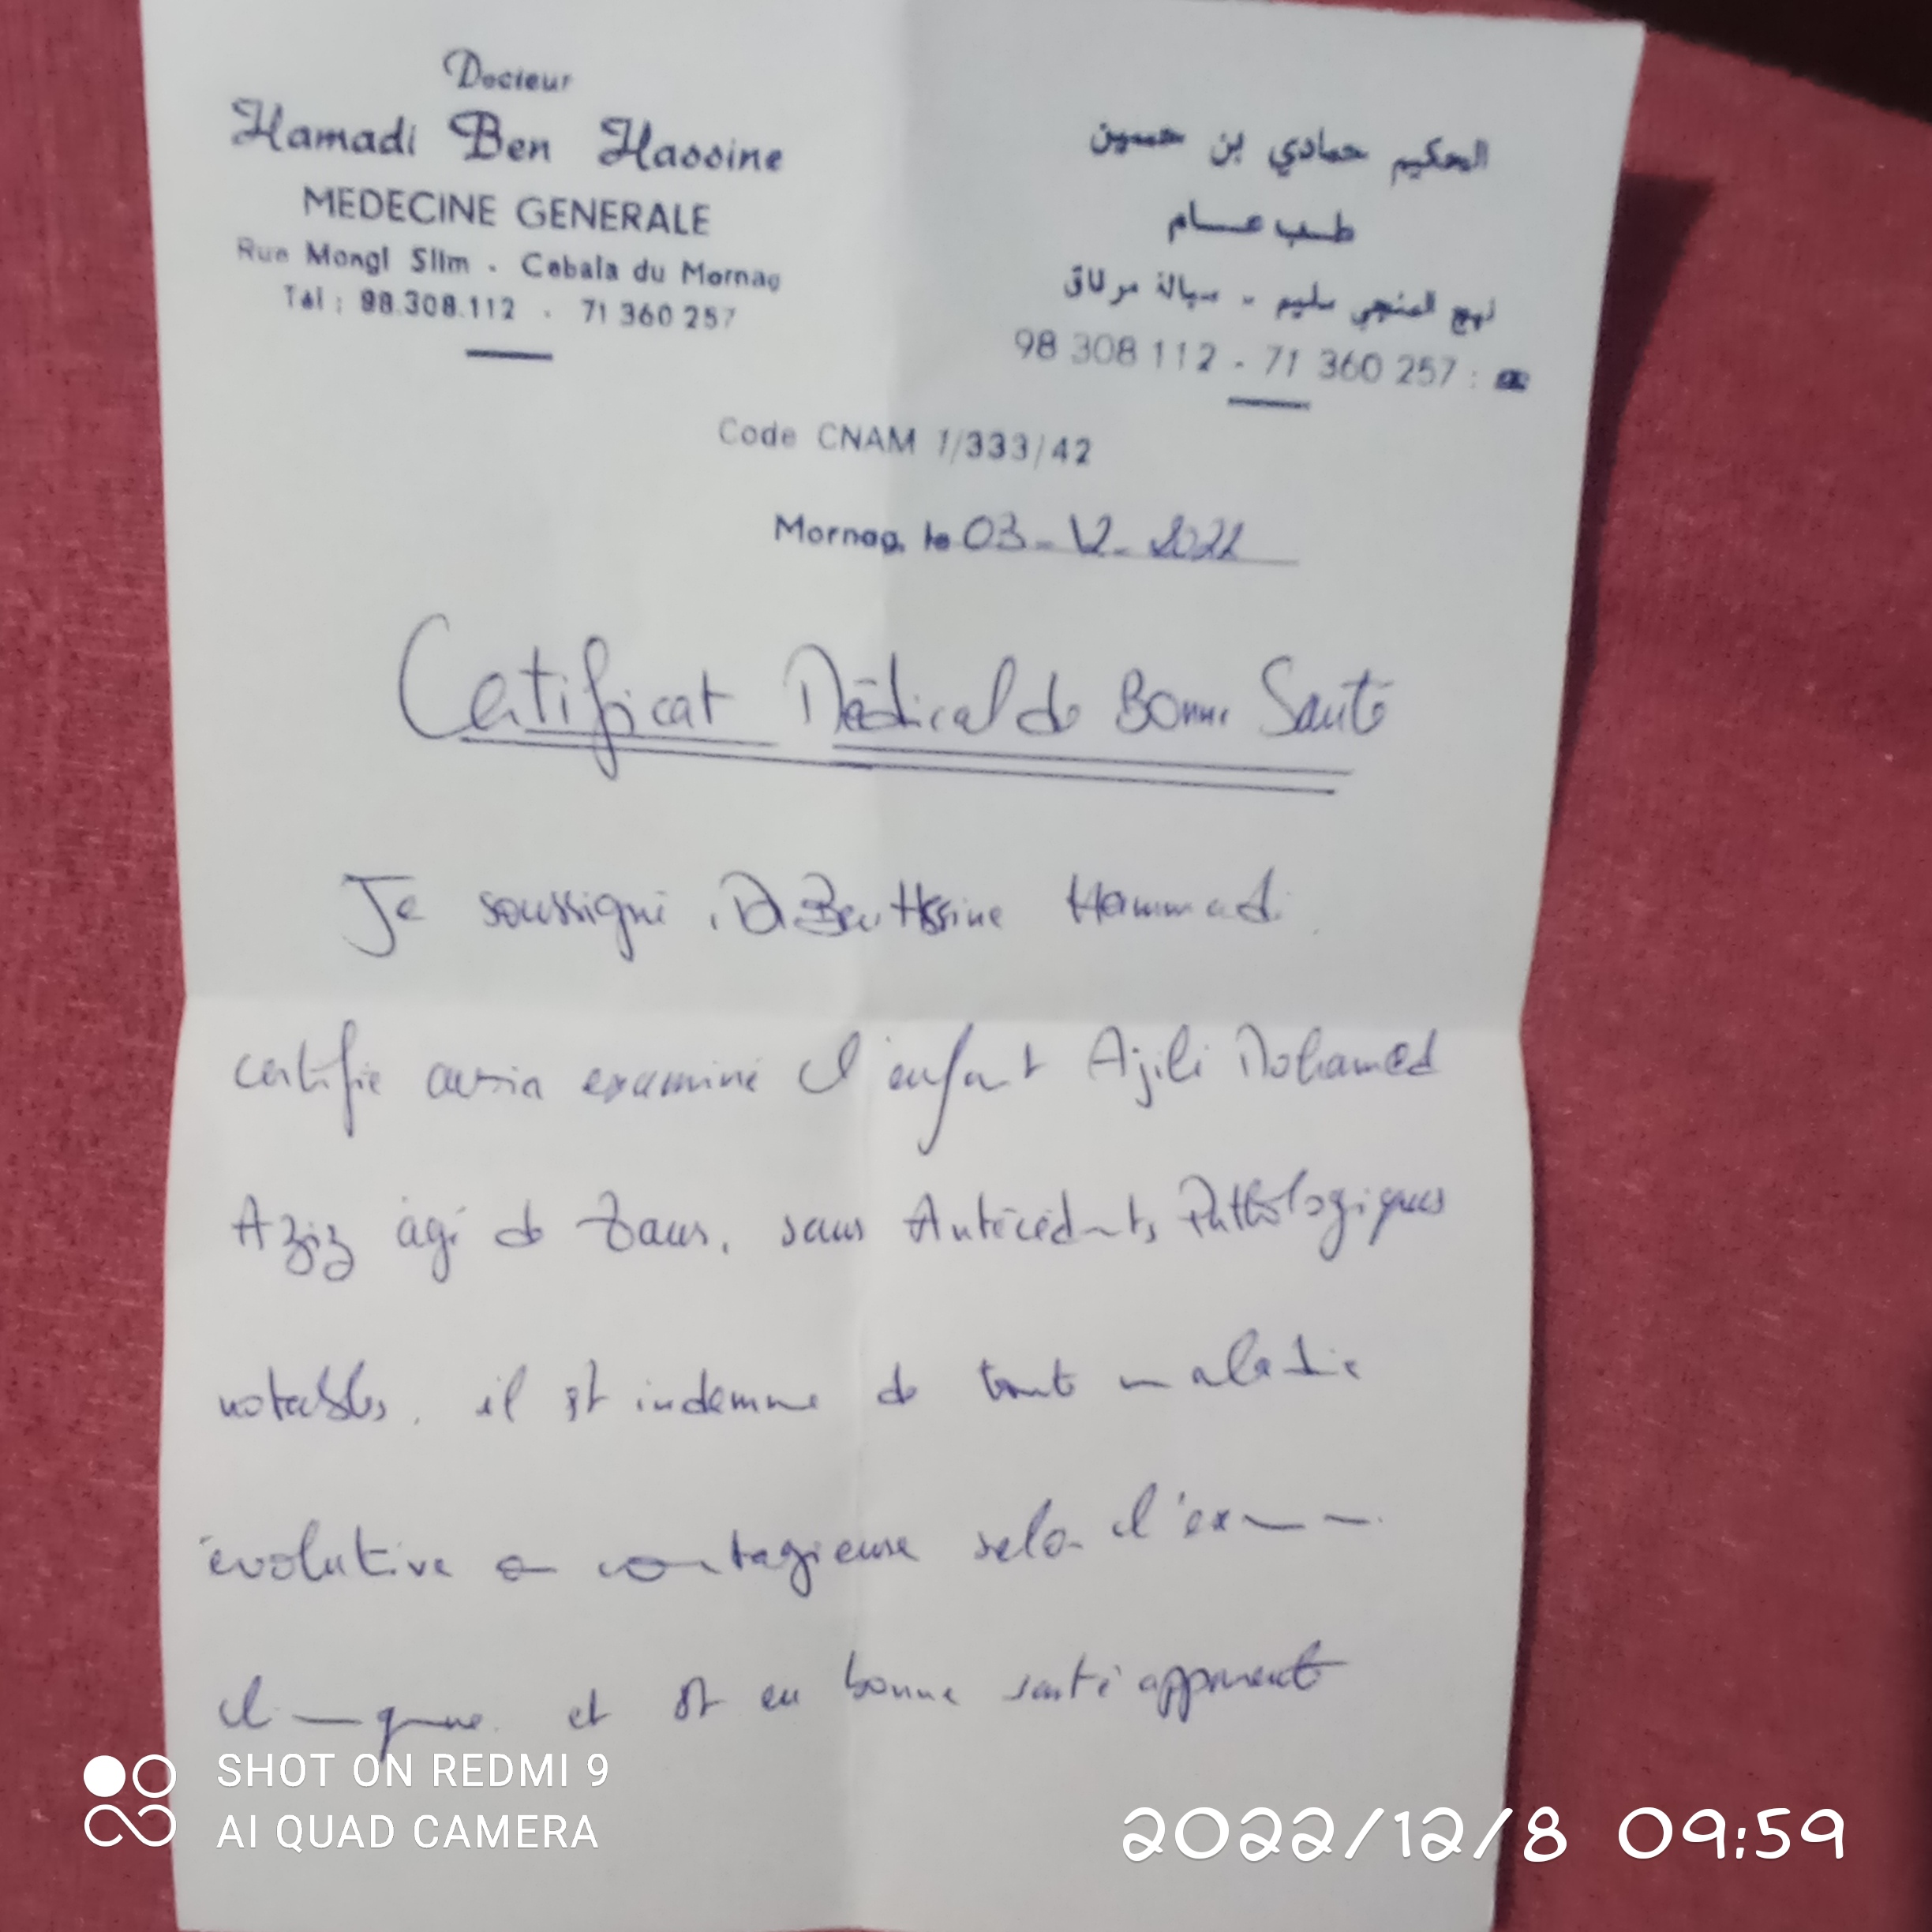 Docteur
Hamadi Ben Hassine
MEDECINE GENERALE
Rue Mongi Slim - Cebala du Mornag
Tél : 98.308.112 - 71 360 257
الحكيم حمادي بن حسين
طب عام
نهج المنجي سليم - سبالة مرناق
98 308 112 - 71 360 257 : ☎
Code CNAM 1/333/42
Mornag, le 03-12-2022
Certificat Médical de Bonne Santé
Je soussigné, Dr Ben Hssine Hammadi
certifie avoir examiné l'enfant Ajili Mohamed
Aziz âgé de ans, sans Antécédents Pathologiques
notables, il est indemne de toute maladie
évolutive ou contagieuse selon l'examen
clinique et est en bonne santé apparente
SHOT ON REDMI 9
AI QUAD CAMERA
2022/12/8 09:59